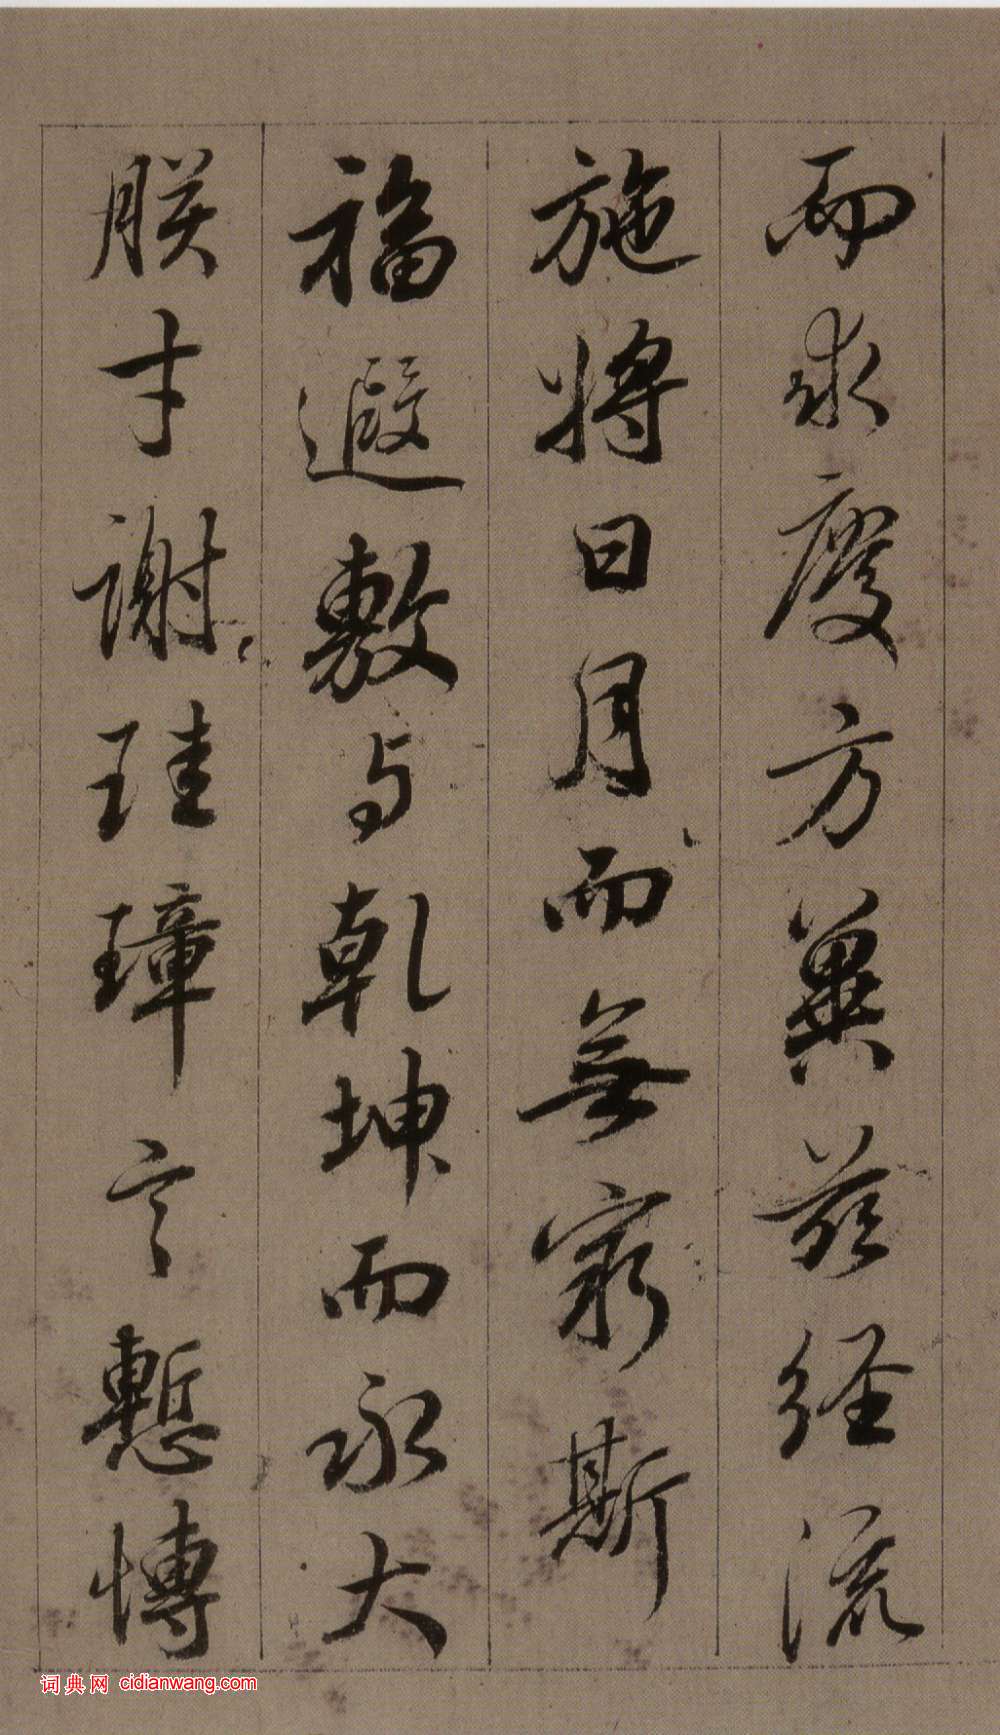 而求慶方冀茲經流
施將日月而無窮斯
福遐敷与乾坤而永大
朕才謝珪璋言慙博
词典网 cidianwang.com